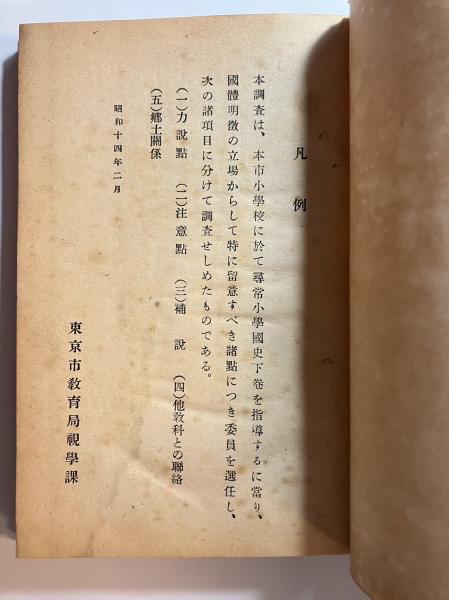 凡例
本調査は、本市小學校に於て尋常小學國史下卷を指導するに當り、
國體明徴の立場からして特に留意すべき諸點につき委員を選任し、
次の諸項目に分けて調査せしめたものである。
(一)力說點 (二)注意點 (三)補說 (四)他敎科との聯絡
(五)鄕土關係
昭和十四年二月
東京市敎育局視學課